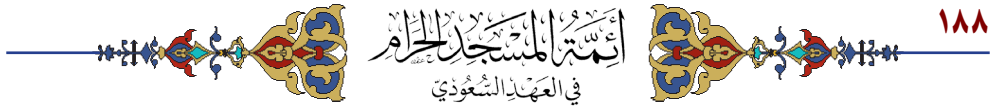 ١٨٨
أَئِمَّةُ الْمَسْجِدِ الْحَرَامِ
فِي الْعَهْدِ السُّعُودِيِّ